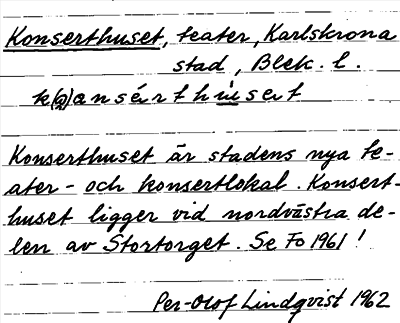 Konserthuset, teater, Karlskrona
stad, Blek. l.
k(ɑ)ansérthùset
Konserthuset är stadens nya te-
ater- och konsertlokal. Konsert-
huset ligger vid nordvästra de-
len av Stortorget. Se Fo 1961!
Per-Olof Lindqvist 1962